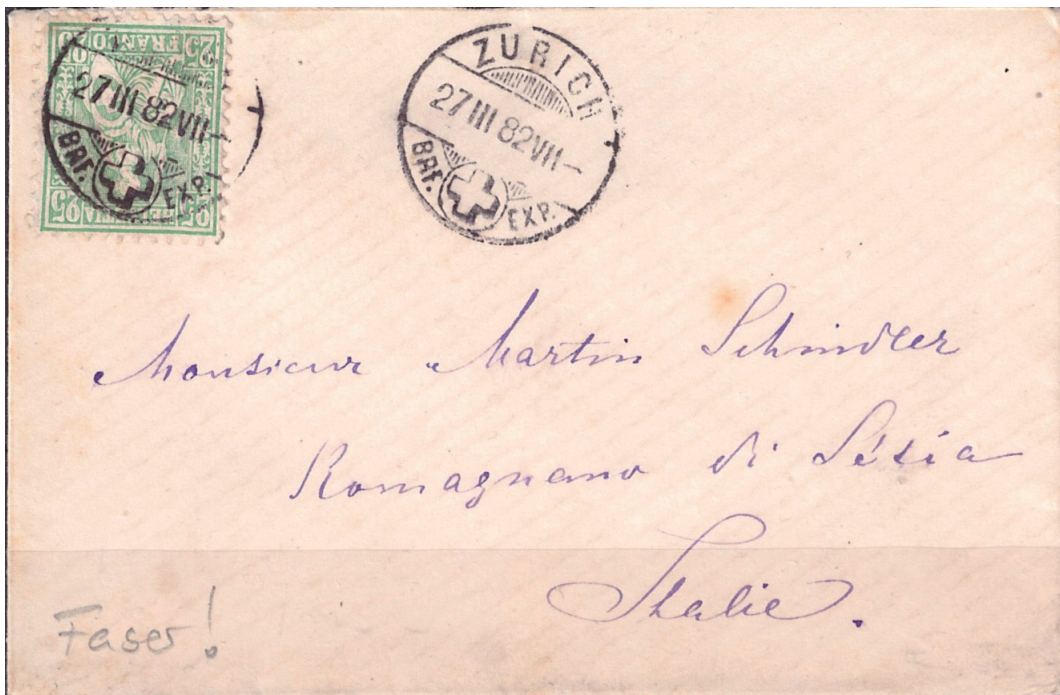 25 FRANCO 05
27 III 82 VII–
BRF. EXP.
25 HELVETIA 25
ZURICH
27 III 82 VII–
BRF. EXP.
Monsieur Martin Schindler
Romagnano di Sésia
Italie.
Faser!